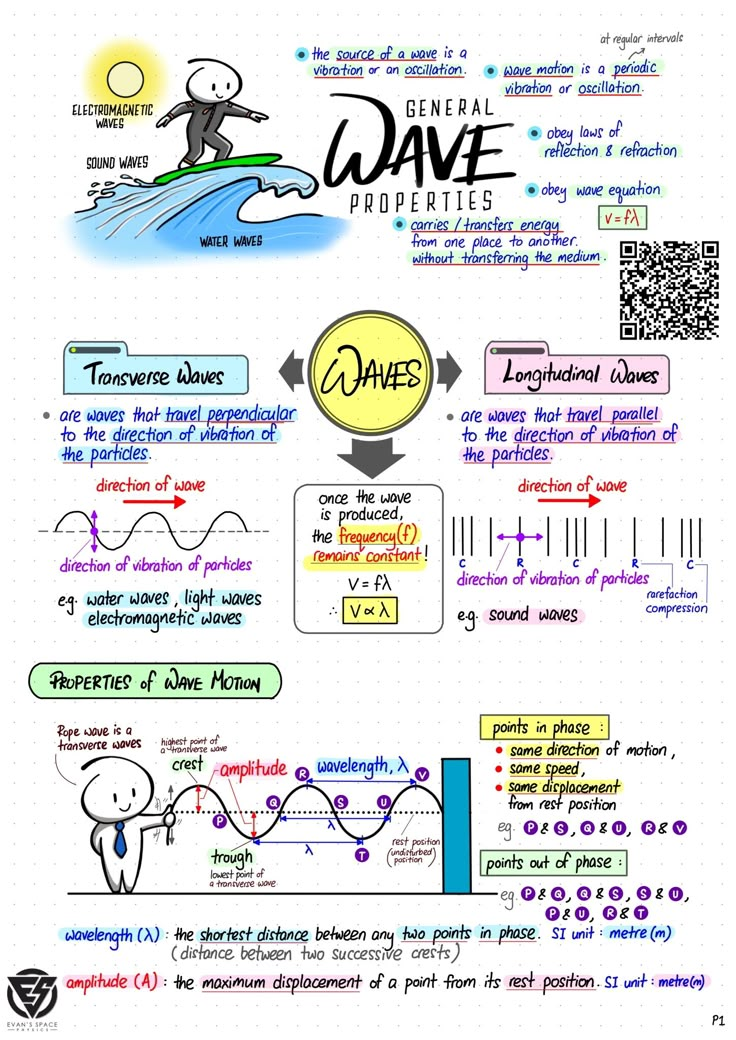 at regular intervals
• the source of a wave is a
vibration or an oscillation.
• wave motion is a periodic
vibration or oscillation.
ELECTROMAGNETIC
WAVES
SOUND WAVES
WATER WAVES
GENERAL
WAVE
PROPERTIES
• obey laws of
reflection & refraction
• obey wave equation
v=fλ
• carries / transfers energy
from one place to another.
without transferring the medium.
WAVES
Transverse Waves
• are waves that travel perpendicular
to the direction of vibration of
the particles.
direction of wave
direction of vibration of particles
e.g. water waves, light waves
electromagnetic waves
once the wave
is produced,
the frequency(f)
remains constant!
V = fλ
∴ V ∝ λ
Longitudinal Waves
• are waves that travel parallel
to the direction of vibration of
the particles.
direction of wave
C R C R C
direction of vibration of particles
rarefaction
compression
e.g. sound waves
PROPERTIES of WAVE MOTION
Rope wave is a
transverse waves
highest point of
a transverse wave
crest
amplitude
R wavelength, λ V
P Q S U
λ
λ
T
trough
lowest point of
a transverse wave
rest position
(undisturbed)
position
points in phase :
• same direction of motion,
• same speed,
• same displacement
from rest position
eg. P & S, Q & U, R & V
points out of phase :
eg. P & Q, Q & S, S & U,
P & U, R & T
wavelength (λ) : the shortest distance between any two points in phase. SI unit : metre (m)
(distance between two successive crests)
amplitude (A) : the maximum displacement of a point from its rest position. SI unit : metre(m)
ES
EVAN'S SPACE
PHYSICS
P1